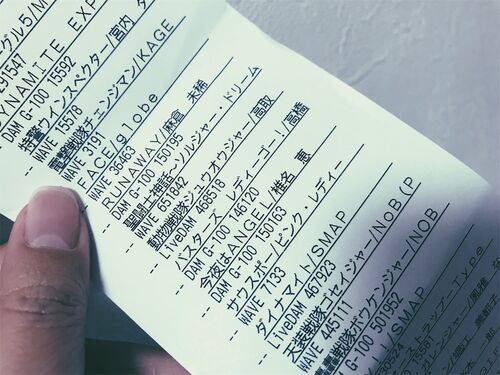 291547
DYNAMITE EXP
DAM G-100 15592
特警ウインスペクター/宮内 タ
WAVE 15578
電撃戦隊チェンジマン/KAGE
WAVE 9191
FACE/globe
WAVE 36463
RUNAWAY/麻倉 未稀
DAM G-100 150195
聖闘士神話~ソルジャー・ドリーム
WAVE 651842
動物戦隊ジュウオウジャー/高取
LiveDAM 468518
バスターズ レディーゴー!/高橋
DAM G-100 146120
今夜はANGEL/椎名 恵
DAM G-100 150163
サウスポー/ピンク・レディー
WAVE 1133
ダイナマイト/SMAP
LiveDAM 467923
天装戦隊ゴセイジャー/NoB (P
WAVE 445111
轟轟戦隊ボウケンジャー/NoB
G-100 501952
SMAP